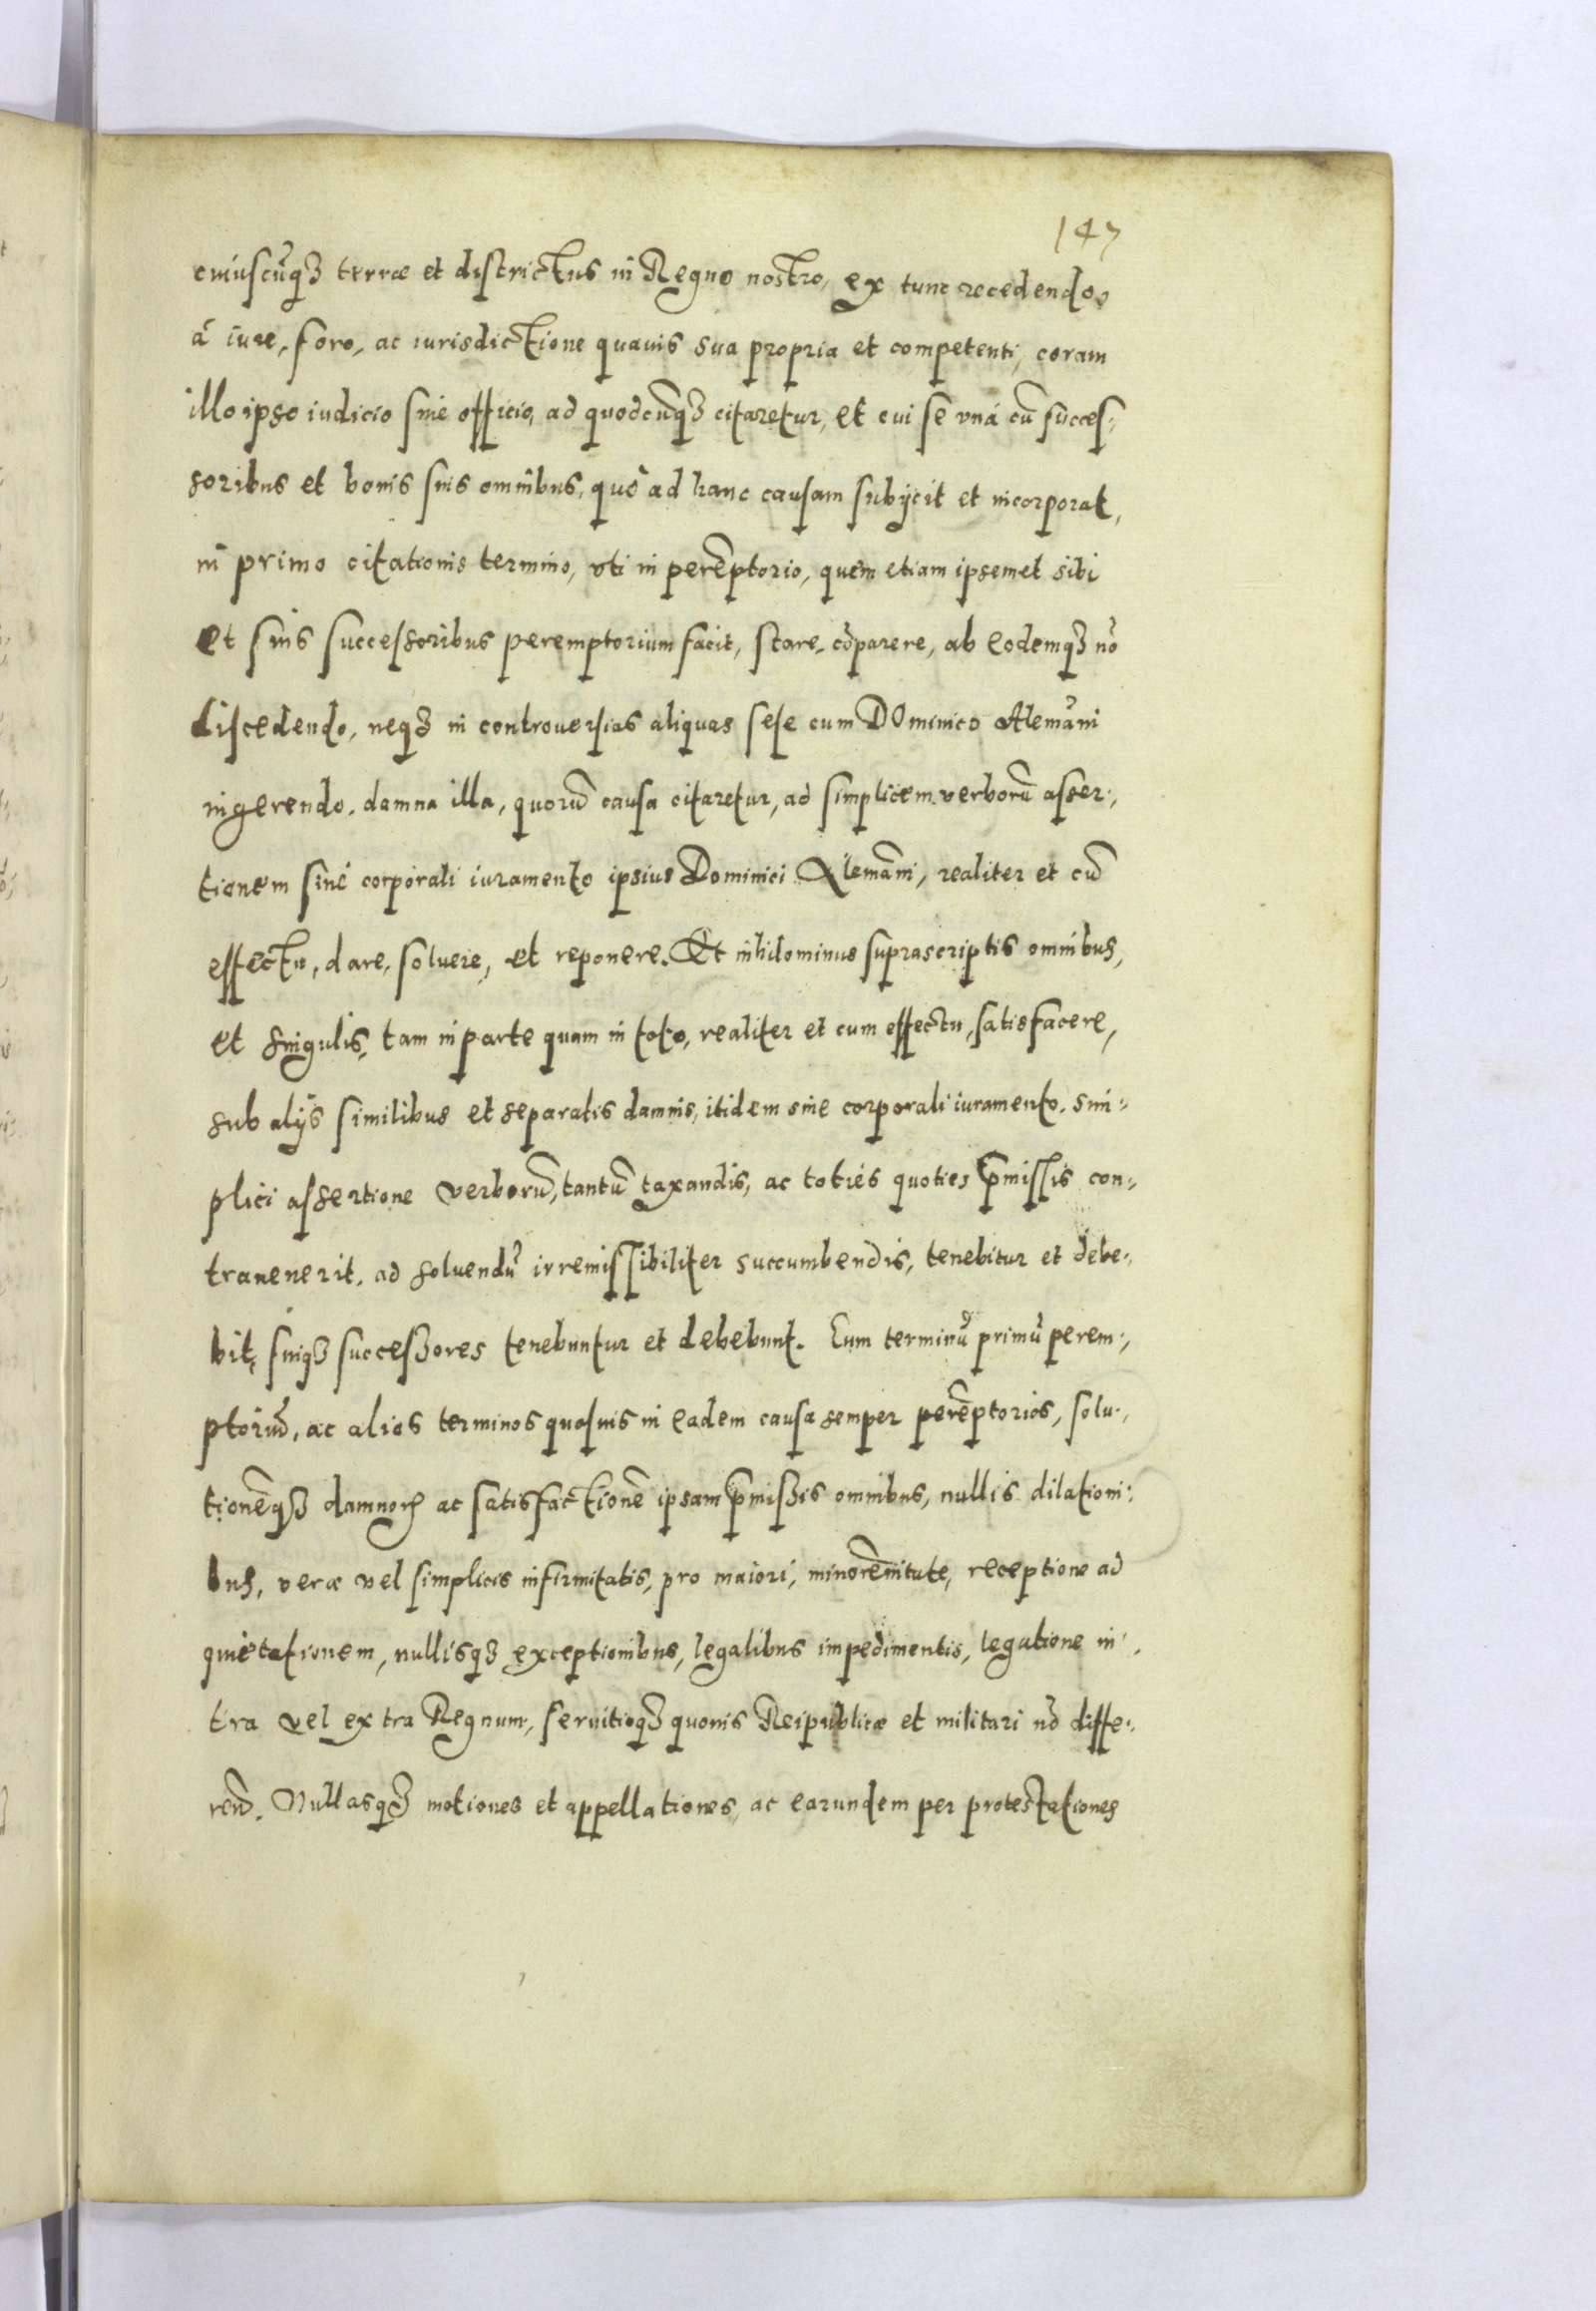 147
cuiuscūqꝫ terræ et districtus in Regno nostro, ex tunc recedendo,
á iure, foro, ac iurisdictione quauis sua propria et competenti, coram
illo ipso iudicio siue officio, ad quodcūqꝫ citaretur, et cui se vná cū succes-
soribus et bonis suis omnibus, quo ad hanc causam subijcit et incorporat,
in primo citationis termino, vti in perēptorio, quem etiam ipsemet sibi
et suis successoribus peremptorium facit, stare, cōparere, ab eodemqꝫ nō
discedendo, neqꝫ in controuersias aliquas sese cum Dominico Alemāni
ingerendo, damna illa, quorū causa citaretur, ad simplicem verborū asser-
tionem siné corporali iuramento ipsius Dominici Alemāni, realiter et cū
effectu, dare, soluere, et reponere. Et nihilominus suprascriptis omnibus,
et singulis, tam in parte quam in toto, realiter et cum effectu, satisfacere,
sub alijs similibus et separatis damnis, itidem sine corporali iuramento, sim-
plici assertione verborū, tantū taxandis, ac toties quoties p̄missis con-
trauenerit, ad soluendū irremissibiliter succumbendis, tenebitur et debe-
bit, suiqꝫ successores tenebuntur et debebunt. Eum terminū primū perem-
ptoriū, ac alios terminos quosuis in eadem causa semper perēptorios, solu-
tionēqꝫ damnorꝫ ac satisfactionē ipsam p̄missis omnibus, nullis dilationi-
bus, veræ vel simplicis infirmitatis, pro maiori, minorēnitate, receptione ad
quietationem, nullisqꝫ exceptionibus, legalibus impedimentis, legatione in-
tra vel extra Regnum, seruitioqꝫ quouis Reipublicæ et militari nō diffe-
rēdo. Nullasqꝫ motiones et appellationes, ac earundem per protestationes